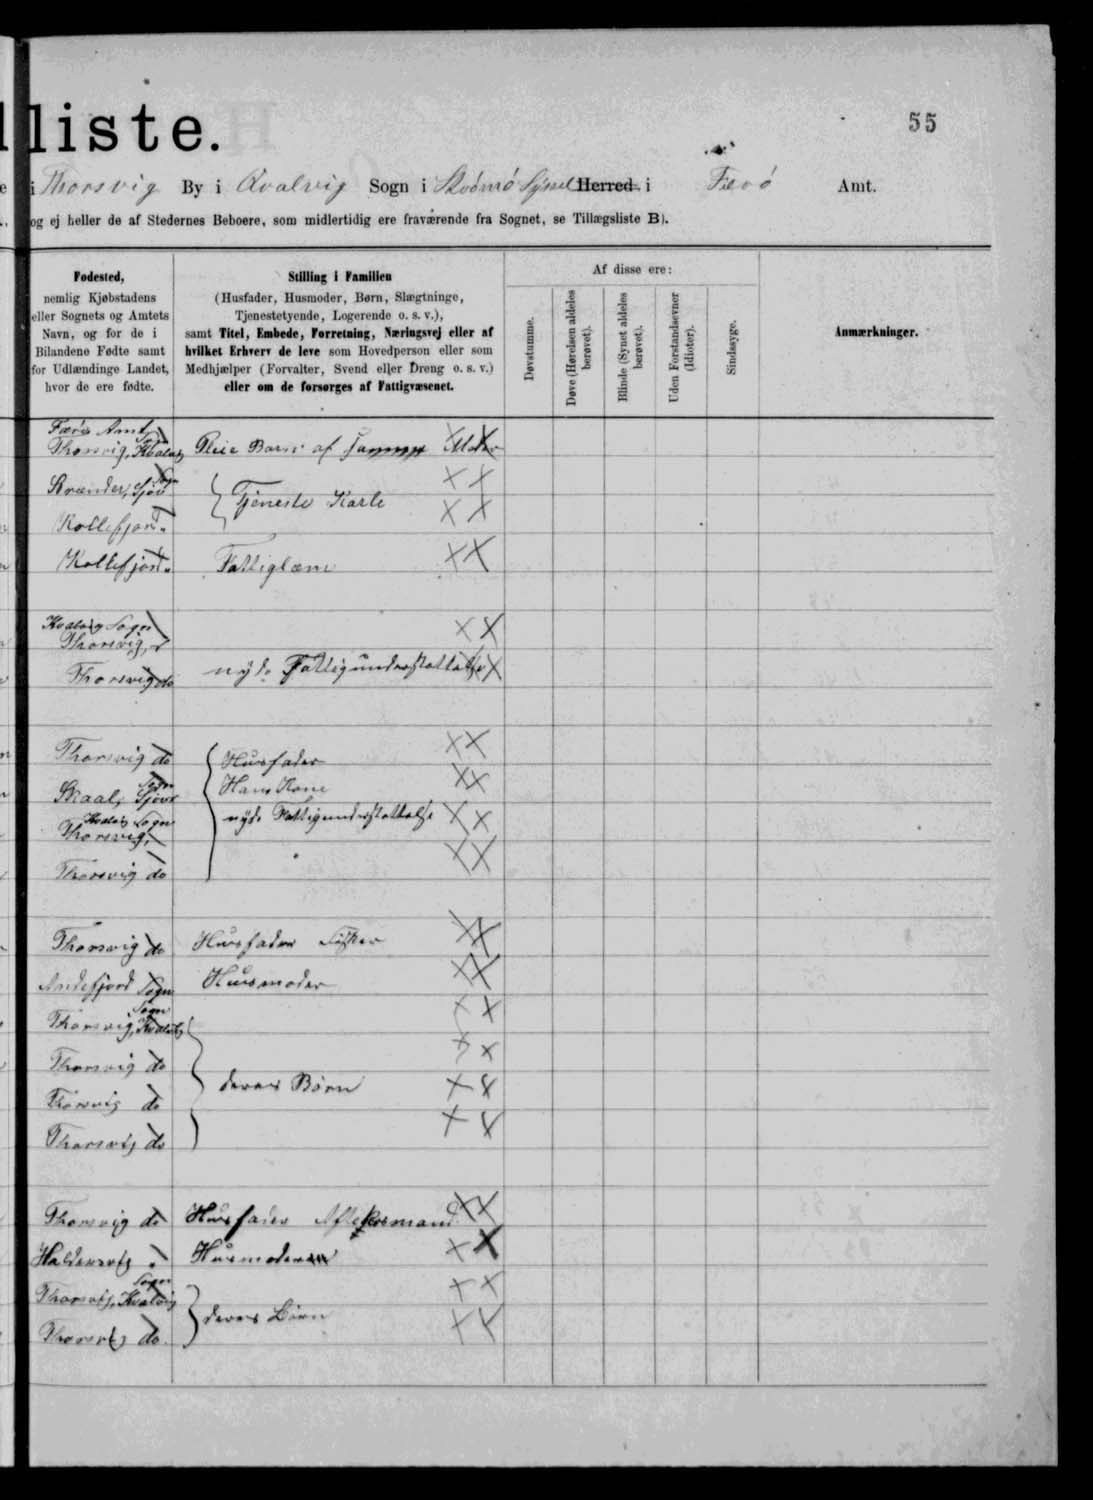 liste.
55
i Thorsvig By i Qvalvig Sogn i Strømø Syssel Herred i Færø Amt.
og ej heller de af Stedernes Beboere, som midlertidig ere fraværende fra Sognet, se Tillægsliste B).
Fødested,
nemlig Kjøbstadens
eller Sognets og Amtets
Navn, og for de i
Bilandene Fødte samt
for Udlændinge Landet,
hvor de ere fødte.
Stilling i Familien
(Husfader, Husmoder, Børn, Slægtninge,
Tjenestetyende, Logerende o. s. v.),
samt Titel, Embede, Forretning, Næringsvej eller af
hvilket Erhverv de leve som Hovedperson eller som
Medhjælper (Forvalter, Svend eller Dreng o. s. v.)
eller om de forsørges af Fattigvæsenet.
Af disse ere:
Døvstumme.
Døve (Hørelsen aldeles
berøvet).
Blinde (Synet aldeles
berøvet).
Uden Forstandsevner
(Idioter).
Sindssyge.
Anmærkninger.
Færø Amt
Thorsvig, Pleie Barn af
Strænder, Sjov Sogn
Tjeneste Karle
Kollefjord "
Kollefjord " Fattiglem
Kvalvig Sogn
Thorsvig,
Thorsvig do nyde Fattigunderstøttelse
Thorsvig do Husfader
Skaal, Sogn Hans Kone
Kvalvig Sogn
Thorsvig, nyde Fattigunderstøttelse
Thorsvig do
Thorsvig do Husfader Fisker
Andefjord Sogn Husmoder
Sogn
Thorsvig, Kvalvig
Thorsvig do
deres Børn
Thorsvig do
Thorsvig do
Thorsvig do Husfader
Haldersvig " Husmoder
Sogn
Thorsvig, Kvalvig
deres Børn
Thorsvig do